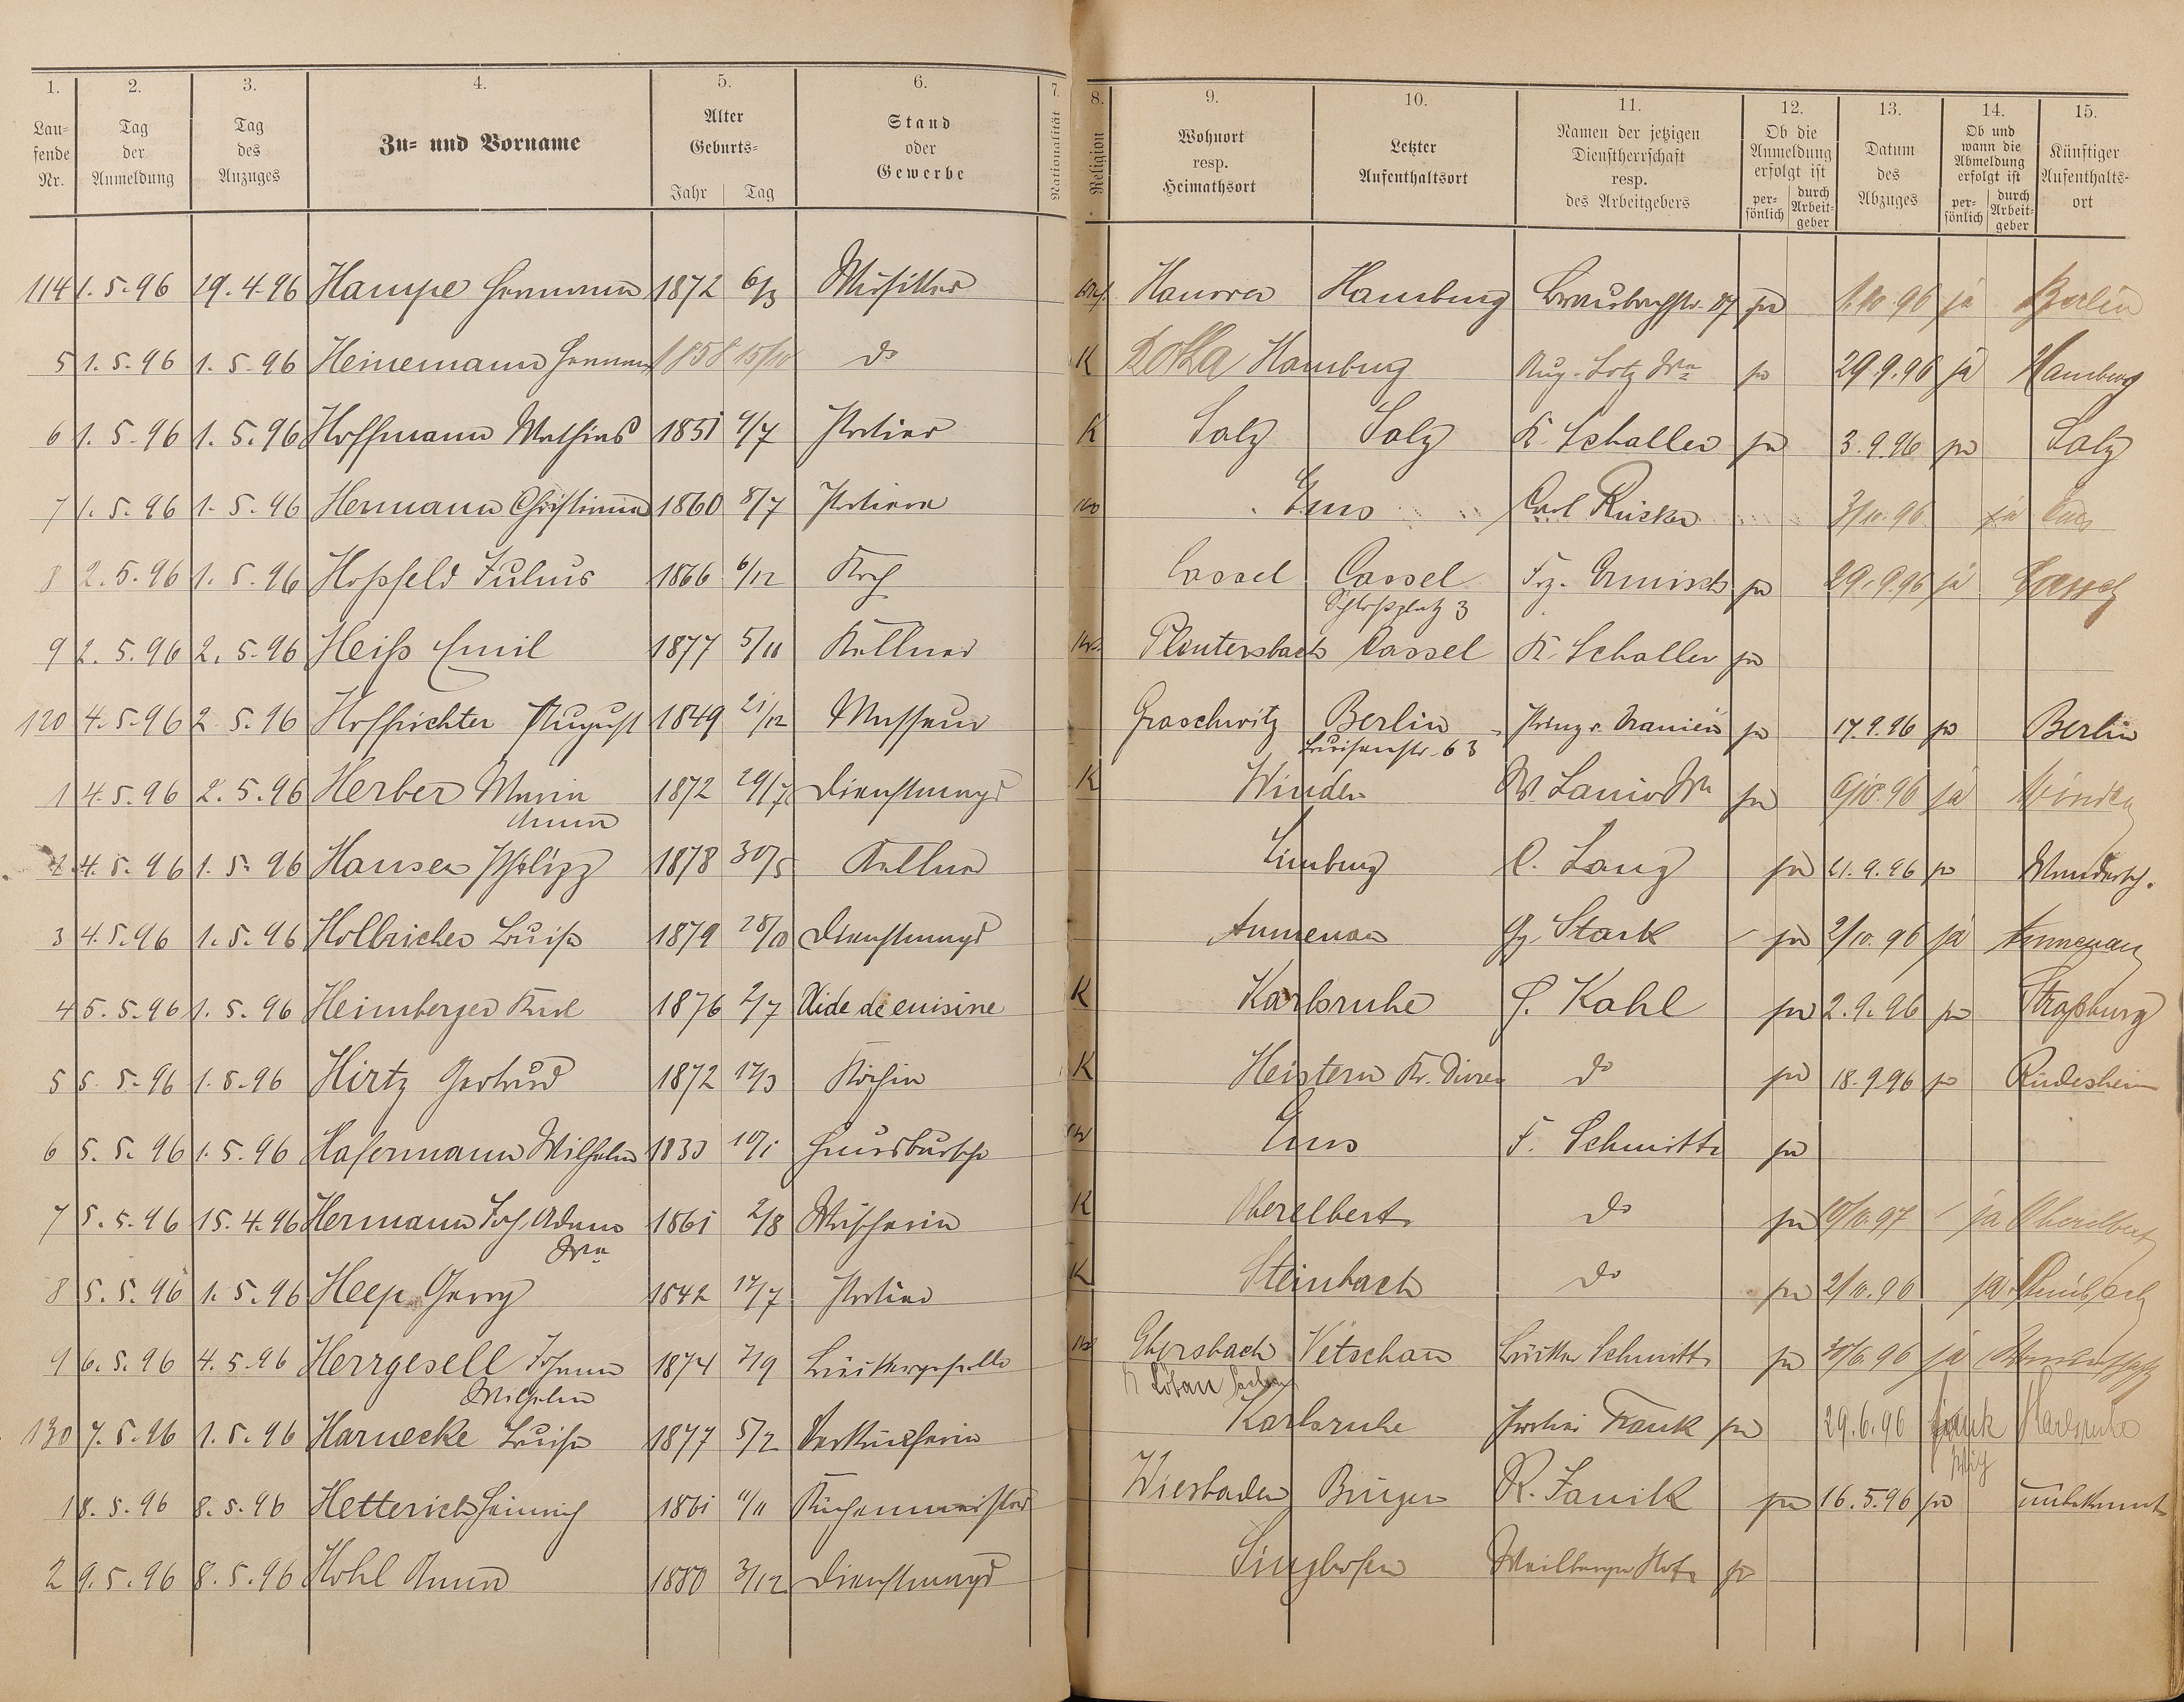 1. 2. 3. 4. 5. 6. 7. 8. 9. 10. 11. 12. 13. 14. 15.
Lau-fende Nr. Tag der Anmeldung Tag des Anzuges Zu- und Vorname Alter Geburts- Jahr Tag Stand oder Gewerbe Nationalität Religion Wohnort resp. Heimathsort Letzter Aufenthaltsort Namen der jetzigen Dienstherrschaft resp. des Arbeitgebers Ob die Anmeldung erfolgt ist per-sönlich durch Arbeit-geber Datum des Abzuges Ob und wann die Abmeldung erfolgt ist per-sönlich durch Arbeit-geber Künftiger Aufenthalts-ort
114 1.5.96 29.4.96 Hampe Hermann 1872 6/3 Musiker Hanover Hamburg ja 1.10.96 ja Berlin
5 1.5.96 1.5.96 Heinemann Hermann 1858 15/10 do K Hamburg Aug. Lotz Wwe ja 29.9.96 ja Hamburg
6 1.5.96 1.5.96 Hoffmann Mathias 1851 4/7 Portier K Salz Salz K. Schaller ja 3.9.96 ja Salz
7 1.5.96 1.5.96 Hermann Christiana 1860 8/7 Ems Carl Rücker 3/10.96 ja Ems
8 2.5.96 1.5.96 Hoßfeld Julius 1866 6/12 Koch Cassel Cassel ja 29.9.96 ja Cassel
Schloßplatz 3
9 2.5.96 2.5.96 Heiß Emil 1877 5/11 Kellner Cassel K. Schaller ja
120 4.5.96 2.5.96 Hoffrichter August 1849 21/12 Masseur Groschwitz Berlin Prinz v. Oranien ja 17.9.96 ja Berlin
Luisenstr. 63
1 4.5.96 2.5.96 Herber Maria 1872 29/7 Dienstmagd K Winden W. Lanio Wwe ja 6/10.96 ja Winden
Anna
2 4.5.96 1.5.96 Hansen Philipp 1878 30/5 Kellner Limburg C. Lang ja 21.9.96 ja
3 4.5.96 1.5.96 Hollricher Luise 1879 Dienstmagd Aumenau Gg. Stark ja 2/10.96 ja Aumenau
4 5.5.96 1.5.96 Heimberger Karl 1876 2/7 Aide de cuisine K Karlsruhe J. Kahl ja 2.9.96 ja Straßburg
5 5.5.96 1.5.96 Hirtz Gertrud 1872 17/3 Köchin K Heistern Kr. Düren do ja 18.9.96 ja Rüdesheim
6 5.5.96 1.5.96 Hafermann Wilhelm 1833 10/1 Hausbursche Ems F. Schmitt ja
7 5.5.96 15.4.96 Hermann Joh. Adam 1861 2/8 Wäscherin K Oberelbert do ja 10/10.97 ja Oberelbert
Wwe
8 5.5.96 1.5.96 Heep Georg 1842 17/7 Portier K Steinbach do ja 2/10.96 ja Steinbach
9 6.5.96 4.5.96 Herrgesell Johann 1874 7/9 Ebersbach Vetschau Schmitt ja 30/6.96 ja
Wilhelm Löbau Sachsen
130 7.5.96 1.5.96 Harnecke Luise 1877 5/2 Verkäuferin Karlsruhe Frank ja 29.6.96 Frank Karlsruhe
1 8.5.96 8.5.96 Hetterich Heinrich 1861 11/11 Küchenmeister Wiesbaden Bingen R. Fanik ja 16.5.96 ja unbekannt
2 9.5.96 8.5.96 Hohl Anna 1880 3/12 Dienstmagd Singhofen Weilburger Hof ja